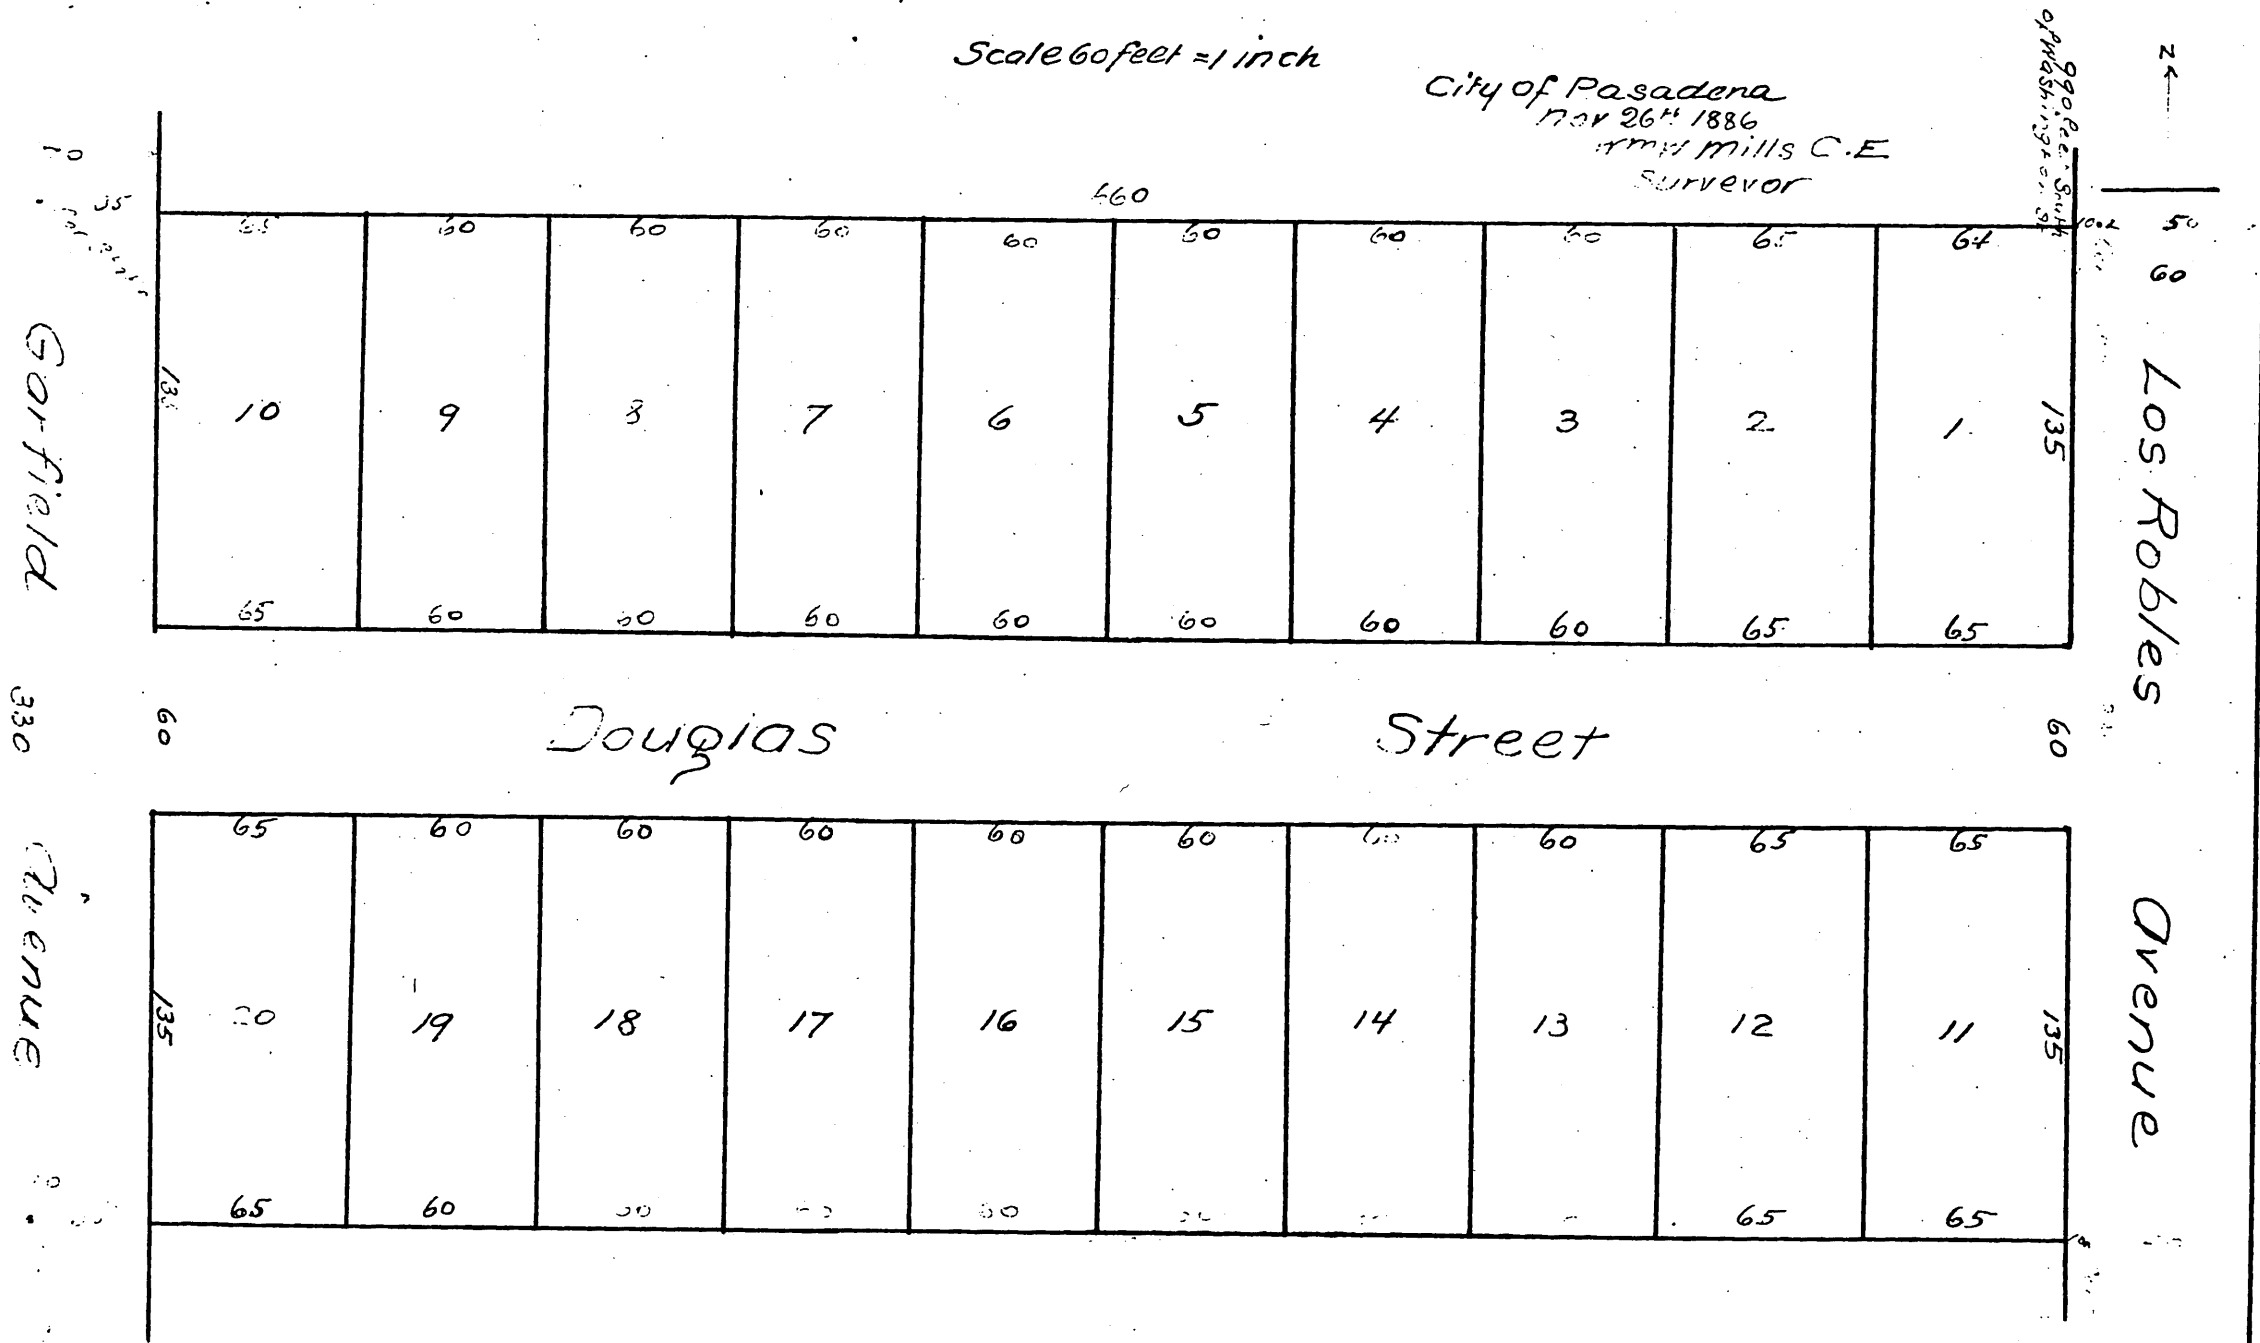 Scale 60 feet = 1 inch
City of Pasadena
Nov 26th 1886
Mills C.E
Surveyor
N
990 feet South
of Washington St
660
35
65 60 60 60 60 60 60 60 65 64
50
60
10 9 8 7 6 5 4 3 2 1
135
135
65 60 60 60 60 60 60 60 65 65
Garfield 330 Avenue
Los Robles Avenue
60
Douglas Street
60
65 60 60 60 60 60 60 60 65 65
20 19 18 17 16 15 14 13 12 11
135
135
65 60 60 65 65